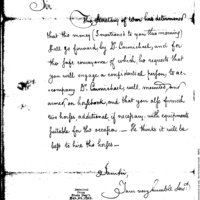 Sir
The Secretary of War has determined
that the money (I mentioned to you this morning)
shall go forward by Dr. Carmichael, and for
the safe conveyance of which, he requests that
you will engage a confidential person, to ac-
company Dr. Carmichael, well mounted, and
armed, on horseback, and that you also furnish
two horses additional, if necessary, with equipments
suitable for the occasion — He thinks it will be
best to hire the horses —
I am Sir,
Your very humble Servt.